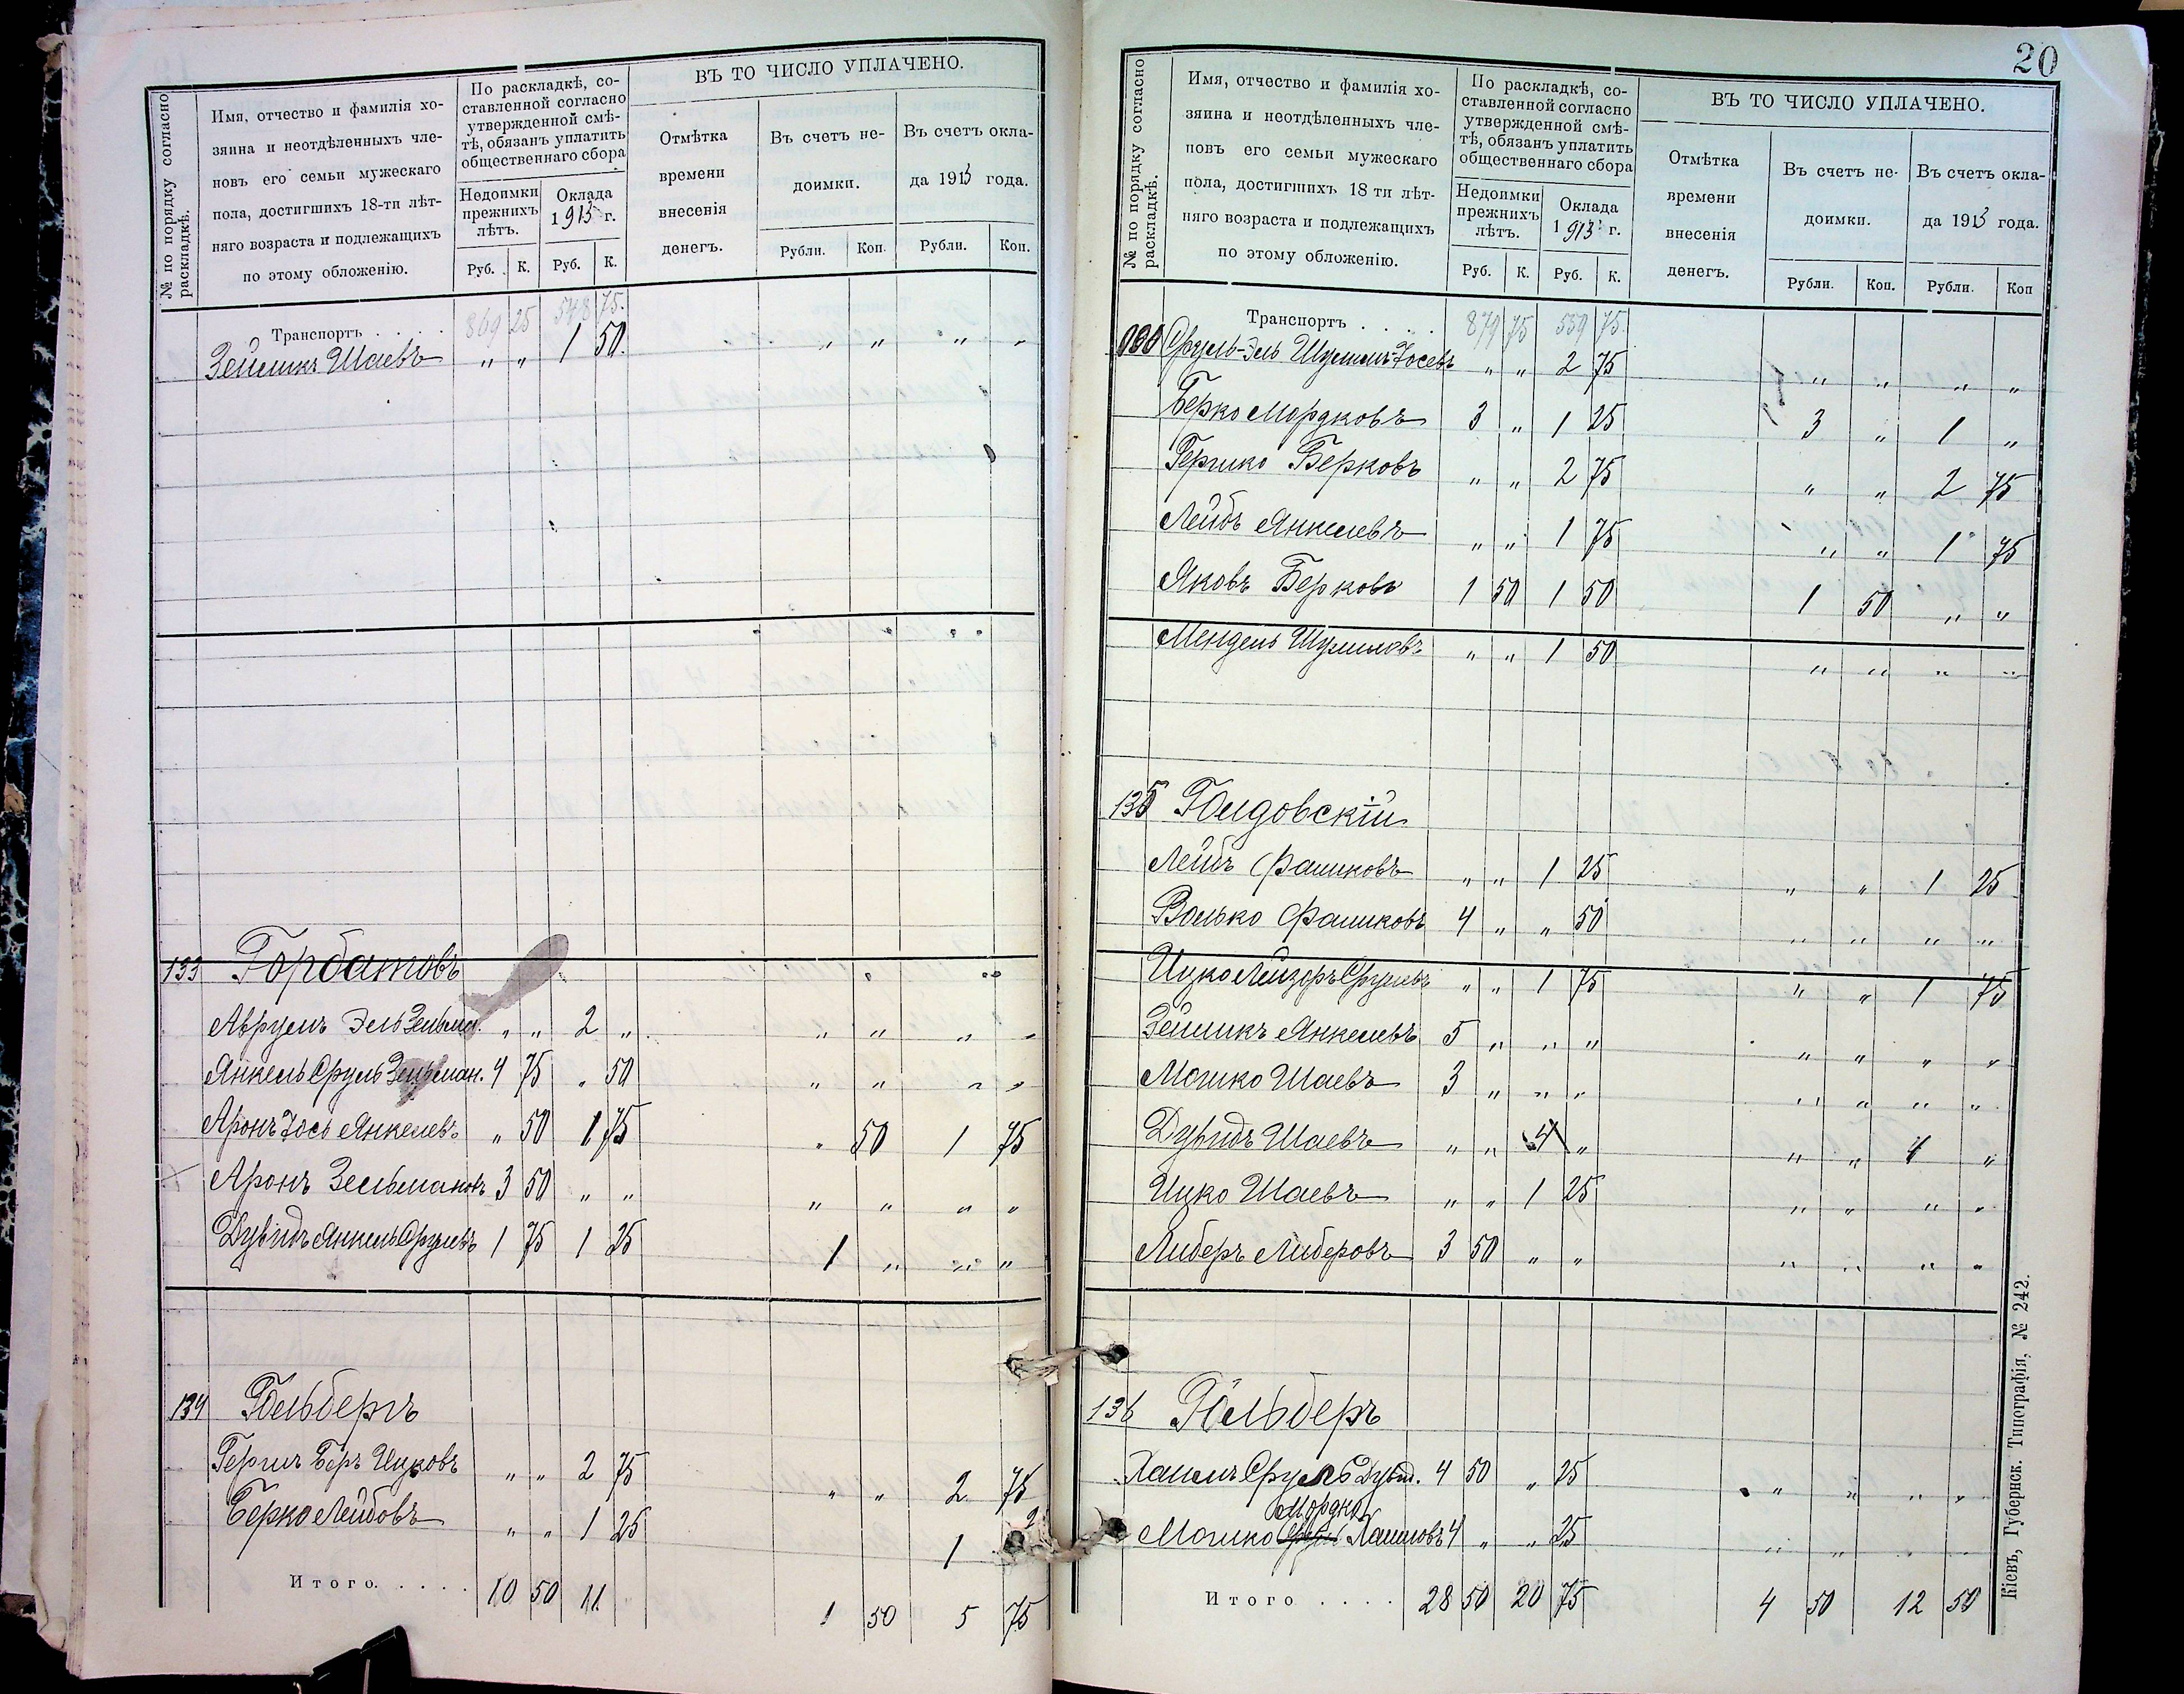 № по порядку согласно раскладкѣ.
Имя, отчество и фамилія хо-
зяина и неотдѣленныхъ чле-
новъ его семьи мужескаго
пола, достигшихъ 18-ти лѣт-
няго возраста и подлежащихъ
по этому обложенію.
По раскладкѣ, со-
ставленной согласно
утвержденной смѣ-
тѣ, обязанъ уплатить
общественнаго сбора
Недоимки
прежнихъ
лѣтъ.
Оклада
1913 г.
Руб. К. Руб. К.
ВЪ ТО ЧИСЛО УПЛАЧЕНО.
Отмѣтка
времени
внесенія
денегъ.
Въ счетъ не-
доимки.
Въ счетъ окла-
да 1913 года.
Рубли. Коп. Рубли. Коп.
Транспортъ . . . . 869 25 548 75.
Зейликъ Шаевъ " " 1 50. " " " "
133 Горбатовъ
Аврумъ Эль Зельм. " " 2 " " " " "
Янкель Сруль Зельман. 4 75 " 50 " " " "
Аронъ Іось Янкелевъ " 50 1 75 " 50 1 75
Аронъ Зельмановъ 3 50 " " " " " "
Дувидъ Янкель Срулевъ 1 75 1 25 1 " " "
134 Гольбергъ
Гершъ Беръ Ицковъ " " 2 75 " " 2 75
Берко Лейбовъ " " 1 25 1
Итого. . . . . 10 50 11 1 50 5 75
20
№ по порядку согласно раскладкѣ.
Имя, отчество и фамилія хо-
зяина и неотдѣленныхъ чле-
новъ его семьи мужескаго
пола, достигшихъ 18 ти лѣт-
няго возраста и подлежащихъ
по этому обложенію.
По раскладкѣ, со-
ставленной согласно
утвержденной смѣ-
тѣ, обязанъ уплатить
общественнаго сбора
Недоимки
прежнихъ
лѣтъ.
Оклада
1913 г.
Руб. К. Руб. К.
ВЪ ТО ЧИСЛО УПЛАЧЕНО.
Отмѣтка
времени
внесенія
денегъ.
Въ счетъ не-
доимки.
Въ счетъ окла-
да 1913 года.
Рубли. Коп. Рубли. Коп
Транспортъ . . . . 879 75 559 75.
Сруль-Эль Шулимъ-Іосевъ " " 2 75 " " " "
Берко Мордковъ 3 " 1 25 3 " 1 "
Гершко Берковъ " " 2 75 " " 2 75
Лейбъ Янкелевъ " " 1 75 " " 1 75
Яковъ Берковъ 1 50 1 50 1 50 " "
Мендель Шулимовъ " " 1 50 " " " "
135 Голдовскій
Лейбъ Фашковъ " " 1 25 " " 1 25
Волько Фашковъ 4 " " 50 " " " "
Ицко Лейзоръ Срулевъ " " 1 75 " " 1 75
Зейликъ Янкелевъ 5 " " " " " " "
Мошко Шаевъ 3 " " " " " " "
Дувидъ Шаевъ " " 4 " " " 4 "
Ицко Шаевъ " " 1 25 " " " "
Либеръ Либеровъ 3 50 " " " " " "
136 Гольберъ
Хаимъ Сруль Дувид. 4 50 " 25 " " " "
Мордко
Мошко Хаимовъ 4 " " 25 " " " "
Итого . . . . 28 50 20 75 4 50 12 50
Кіевъ, Губернск. Типографія, № 242.